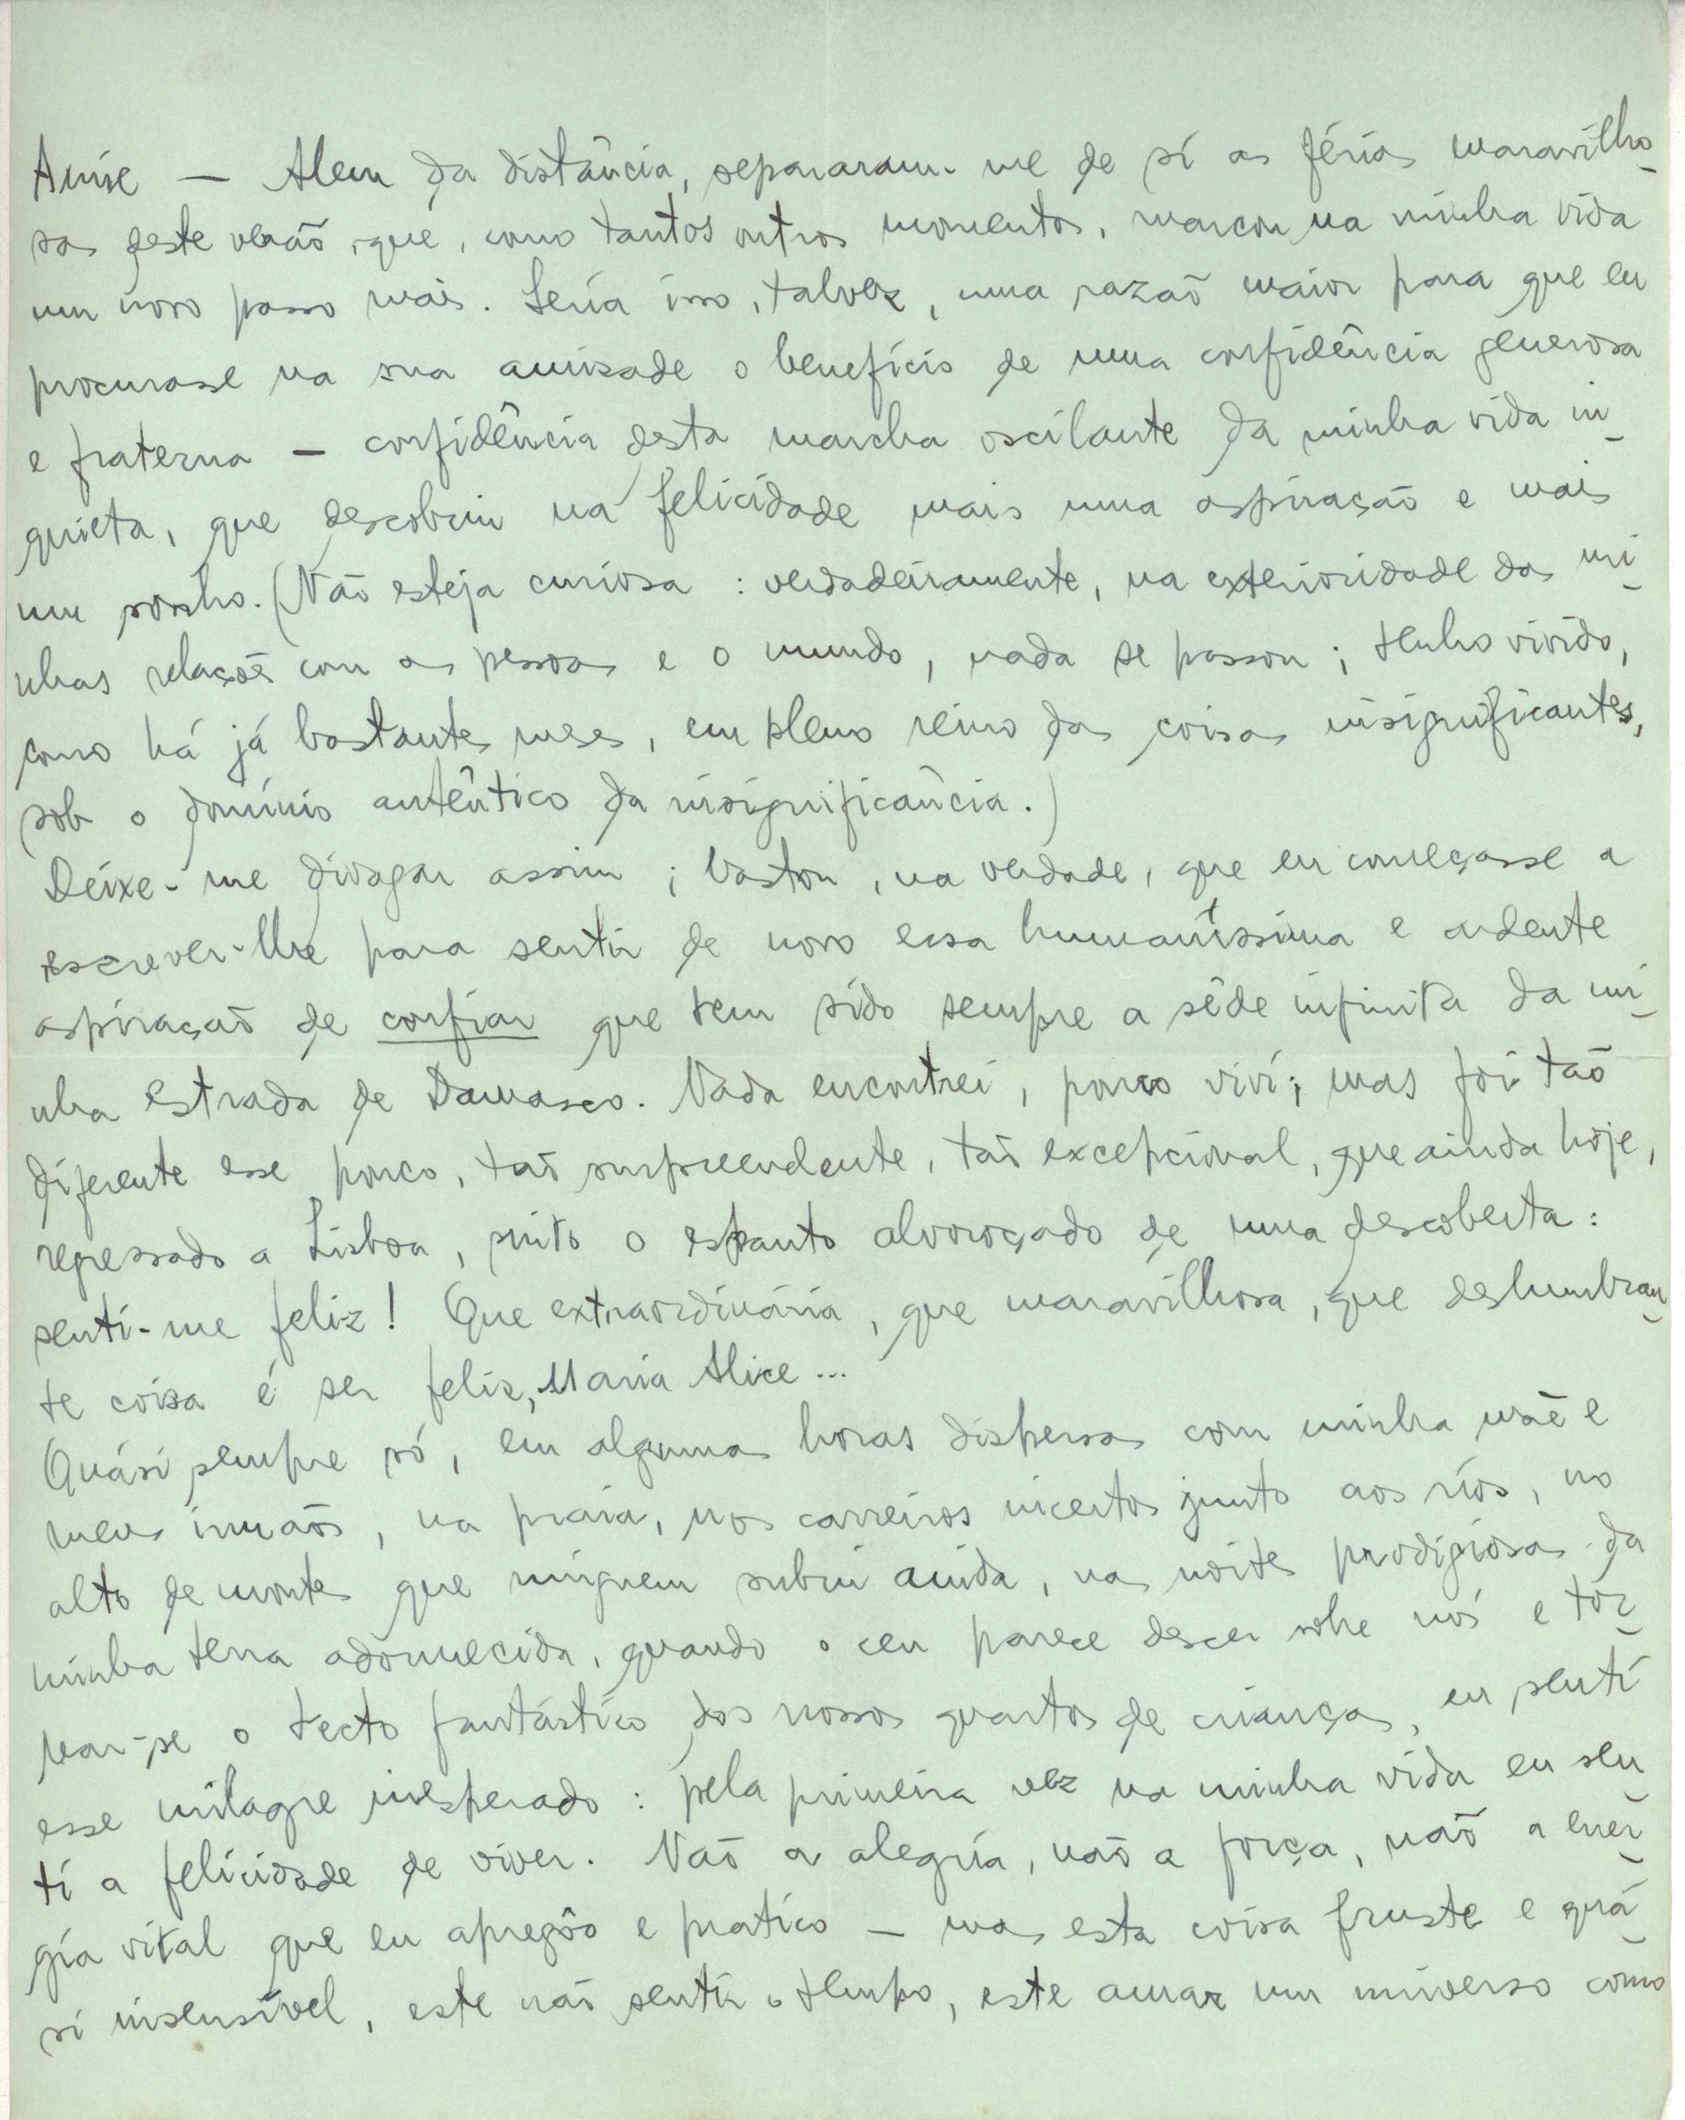 Amie — Alem da distância, separaram-me de si as férias maravilho-
sas deste verão, que, como tantos outros momentos, marcou na minha vida
um novo passo mais. Seria isso, talvez, uma razão maior para que eu
procurasse na sua amisade o benefício de uma confidência generosa
e fraterna — confidência desta marcha oscilante da minha vida in-
quieta, que descobriu na felicidade mais uma aspiração e mais
um sonho. (Não esteja curiosa : verdadeiramente, na exterioridade das mi-
nhas relações com as pessoas e o mundo, nada se passou ; tenho vivido,
como há já bastantes meses, em pleno reino das coisas insignificantes,
sob o domínio autêntico da insignificância.)
Deixe-me divagar assim ; bastou, na verdade, que eu começasse a
escrever-lhe para sentir de novo essa humaníssima e ardente
aspiração de confiar que tem sido sempre a sêde infinita da mi-
nha estrada de Damasco. Nada encontrei, pouco viví; mas foi tão
diferente esse pouco, tão surpreendente, tão excepcional, que ainda hoje,
regressado a Lisboa, sinto o espanto alvoroçado de uma descoberta :
sentí-me feliz! Que extraordinária, que maravilhosa, que deslumbran-
te coisa é ser feliz, Maria Alice ...
Quási sempre só, em algumas horas dispersas com minha mãe e
meus irmãos, na praia, nos carreiros incertos junto aos rios, no
alto de montes que ninguem subiu ainda, nas noites prodigiosas da
minha terra adormecida, quando o ceu parece descer sobre nós e tor-
nar-se o tecto fantástico dos nossos quartos de crianças, eu sentí
esse milagre inesperado : pela primeira vez na minha vida eu sen-
tí a felicidade de viver. Não a alegria, não a força, não a ener-
gia vital que eu apregôo e pratico — mas esta coisa fruste e quá-
si insensível, este não sentir o tempo, este amar um universo como